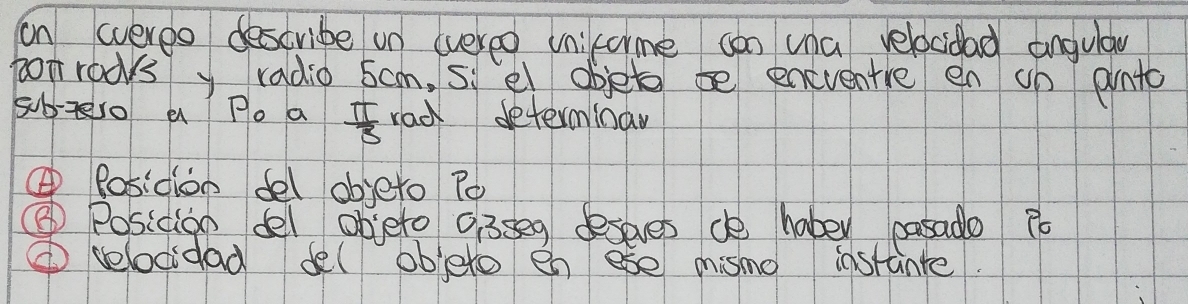 un cuerpo describe un cuerpo uniforme con una velocidad angular
20π rad/s y radio 5cm, Si el objeto se encuentre en un punto
sub-zero en Po a π/3 rad determinar
Ⓐ Posición del objeto Po
Ⓑ Posición del objeto 0,3seg despues de haber pasado Po
Ⓒ velocidad del objeto en ese mismo instante.